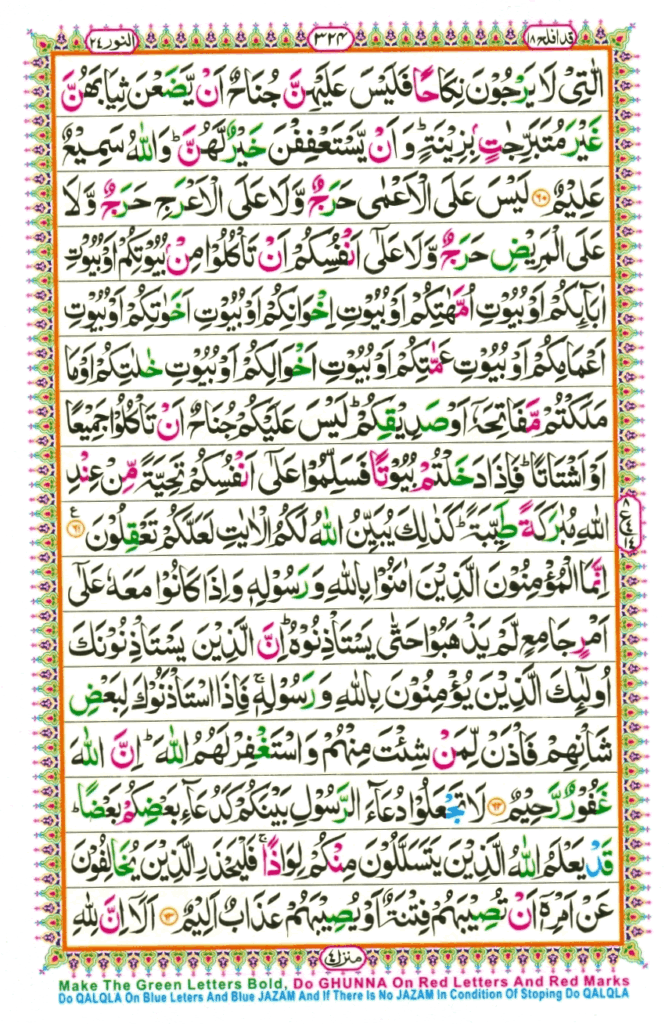 قد افلح ١٨
٣٢٤
النور ٢٤
الّٰتِيْ لَا يَرْجُوْنَ نِكَاحًا فَلَيْسَ عَلَيْهِنَّ جُنَاحٌ اَنْ يَّضَعْنَ ثِيَابَهُنَّ
غَيْرَ مُتَبَرِّجٰتٍۭ بِزِيْنَةٍ ؕ وَ اَنْ يَّسْتَعْفِفْنَ خَيْرٌ لَّهُنَّ ؕ وَاللّٰهُ سَمِيْعٌ
عَلِيْمٌ ﴿٦٠﴾ لَيْسَ عَلَى الْاَعْمٰى حَرَجٌ وَّلَا عَلَى الْاَعْرَجِ حَرَجٌ وَّلَا
عَلَى الْمَرِيْضِ حَرَجٌ وَّلَا عَلٰٓى اَنْفُسِكُمْ اَنْ تَاْكُلُوْا مِنْۢ بُيُوْتِكُمْ اَوْ بُيُوْتِ
اٰبَآئِكُمْ اَوْ بُيُوْتِ اُمَّهٰتِكُمْ اَوْ بُيُوْتِ اِخْوَانِكُمْ اَوْ بُيُوْتِ اَخَوٰتِكُمْ اَوْ بُيُوْتِ
اَعْمَامِكُمْ اَوْ بُيُوْتِ عَمّٰتِكُمْ اَوْ بُيُوْتِ اَخْوَالِكُمْ اَوْ بُيُوْتِ خٰلٰتِكُمْ اَوْ مَا
مَلَكْتُمْ مَّفَاتِحَهٗۤ اَوْ صَدِيْقِكُمْ ؕ لَيْسَ عَلَيْكُمْ جُنَاحٌ اَنْ تَاْكُلُوْا جَمِيْعًا
اَوْ اَشْتَاتًا ؕ فَاِذَا دَخَلْتُمْ بُيُوْتًا فَسَلِّمُوْا عَلٰٓى اَنْفُسِكُمْ تَحِيَّةً مِّنْ عِنْدِ
اللّٰهِ مُبٰرَكَةً طَيِّبَةً ؕ كَذٰلِكَ يُبَيِّنُ اللّٰهُ لَكُمُ الْاٰيٰتِ لَعَلَّكُمْ تَعْقِلُوْنَ ﴿٦١﴾ ع
اِنَّمَا الْمُؤْمِنُوْنَ الَّذِيْنَ اٰمَنُوْا بِاللّٰهِ وَ رَسُوْلِهٖ وَ اِذَا كَانُوْا مَعَهٗ عَلٰٓى
اَمْرٍ جَامِعٍ لَّمْ يَذْهَبُوْا حَتّٰى يَسْتَاْذِنُوْهُ ؕ اِنَّ الَّذِيْنَ يَسْتَاْذِنُوْنَكَ
اُولٰٓئِكَ الَّذِيْنَ يُؤْمِنُوْنَ بِاللّٰهِ وَ رَسُوْلِهٖ ۚ فَاِذَا اسْتَاْذَنُوْكَ لِبَعْضِ
شَاْنِهِمْ فَاْذَنْ لِّمَنْ شِئْتَ مِنْهُمْ وَ اسْتَغْفِرْ لَهُمُ اللّٰهَ ؕ اِنَّ اللّٰهَ
غَفُوْرٌ رَّحِيْمٌ ﴿٦٢﴾ لَا تَجْعَلُوْا دُعَآءَ الرَّسُوْلِ بَيْنَكُمْ كَدُعَآءِ بَعْضِكُمْ بَعْضًا ؕ
قَدْ يَعْلَمُ اللّٰهُ الَّذِيْنَ يَتَسَلَّلُوْنَ مِنْكُمْ لِوَاذًا ۚ فَلْيَحْذَرِ الَّذِيْنَ يُخَالِفُوْنَ
عَنْ اَمْرِهٖۤ اَنْ تُصِيْبَهُمْ فِتْنَةٌ اَوْ يُصِيْبَهُمْ عَذَابٌ اَلِيْمٌ ﴿٦٣﴾ اَلَاۤ اِنَّ لِلّٰهِ
منزل ٤
Make The Green Letters Bold, Do GHUNNA On Red Letters And Red Marks
Do QALQLA On Blue Leters And Blue JAZAM And If There Is No JAZAM In Condition Of Stoping Do QALQLA